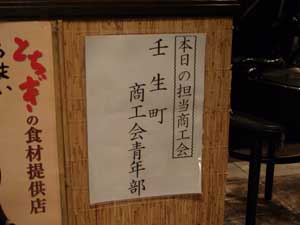 本日の担当商工会
壬生町
商工会青年部
とちぎの食材提供店
うまい